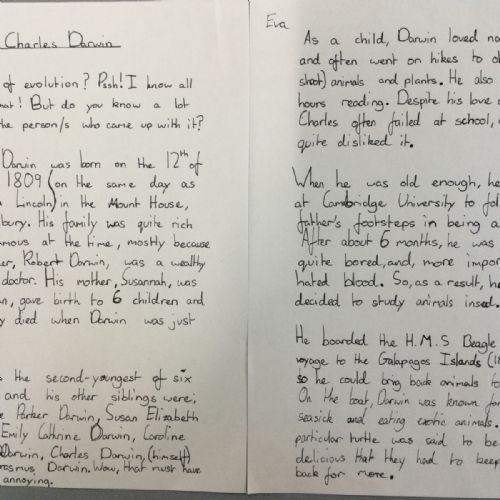 Charles Darwin
of evolution? Pssh! I know all
that! But do you know a lot
the person/s who came up with it?
Darwin was born on the 12th of
1809 (on the same day as
Lincoln) in the Mount House,
bury. His family was quite rich
amous at the time, mostly because
er, Robert Darwin, was a wealthy
doctor. His mother, Susannah, was
an, gave birth to 6 children and
y died when Darwin was just
s the second-youngest of six
and his other siblings were;
e Parker Darwin, Susan Elizabeth
Emily Cathrine Darwin, Caroline
Darwin, Charles Darwin, (himself)
rasmus Darwin. Wow, that must have
annoying.
Eva
As a child, Darwin loved na
and often went on hikes to ob
shoot) animals and plants. He also
hours reading. Despite his love o
Charles often failed at school,
quite disliked it.
When he was old enough, he
at Cambridge University to fol
father's footsteps in being a
After about 6 months, he was
quite bored, and, more impor
hated blood. So, as a result, he
decided to study animals insed.
He boarded the H.M.S Beagle
voyage to the Galapagos Islands (18
so he could bring back animals to
On the boat, Darwin was known for
seasick and eating exotic animals.
particular turtle was said to be
delicious that they had to keep
back for more.